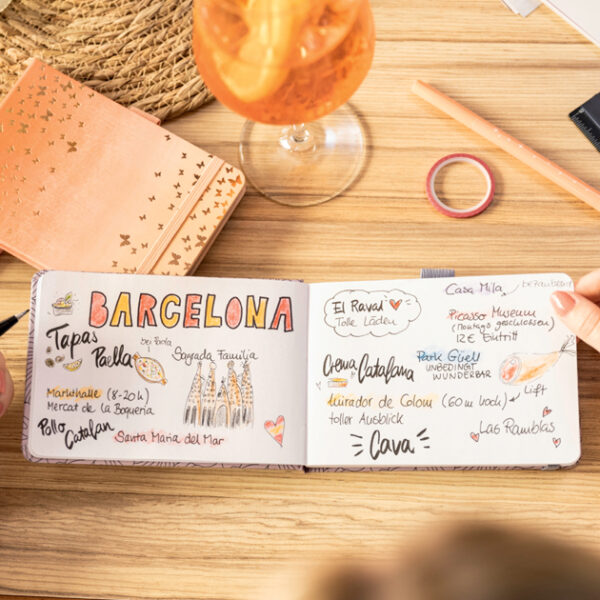 BARCELONA
Tapas
bei Paola
Paella
Sagrada Familia
Markthalle (8-20h)
Mercat de la Boqueria
Pollo
Catalan
Santa Maria del Mar
El Raval
Tolle Läden
Casa Mila
bezaubernd
Picasso Museum
(Montags geschlossen)
12€ Eintritt
Crema Catalana
Park Güell
UNBEDINGT
WUNDERBAR
Mirador de Colom (60m hoch)
Lift
toller Ausblick
Cava
Las Ramblas